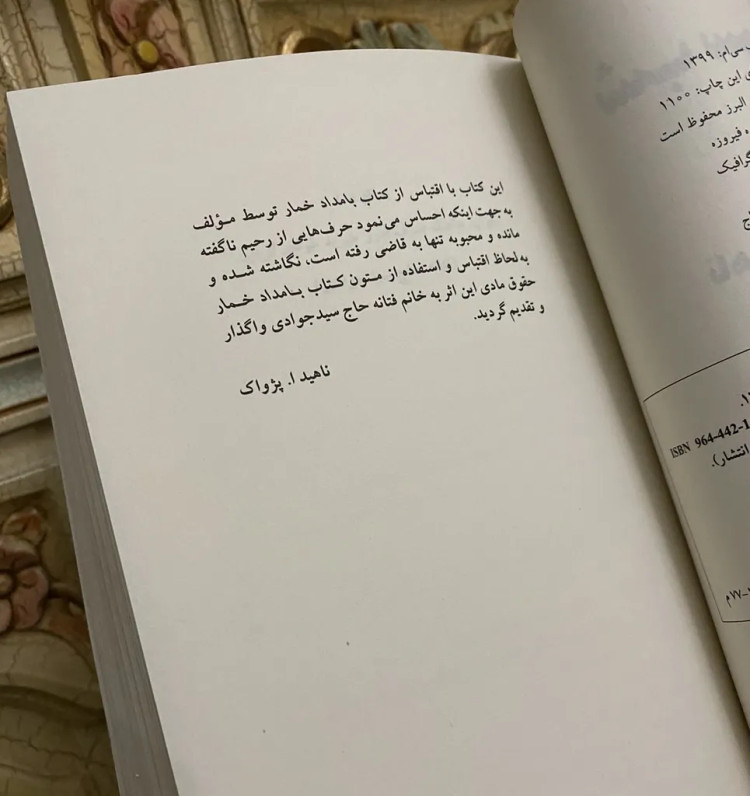 سی‌ام: ۱۳۹۹
این چاپ: ۱۱۰۰
البرز محفوظ است
فیروزه
گرافیک
ISBN 964-442-1
انتشار).
۷۷-م
این کتاب با اقتباس از کتاب بامداد خمار توسط مـؤلف
به جهت اینکه احساس می‌نمود حرف‌هایی از رحیم ناگفته
مانده و محبوبه تنها به قاضی رفته است، نگاشته شده و
به لحاظ اقتباس و استفاده از متون کتاب بـامداد خـمار
حقوق مادی این اثر به خانم فتانه حاج سیدجوادی واگذار
و تقدیم گردید.
ناهید ا. پژواک